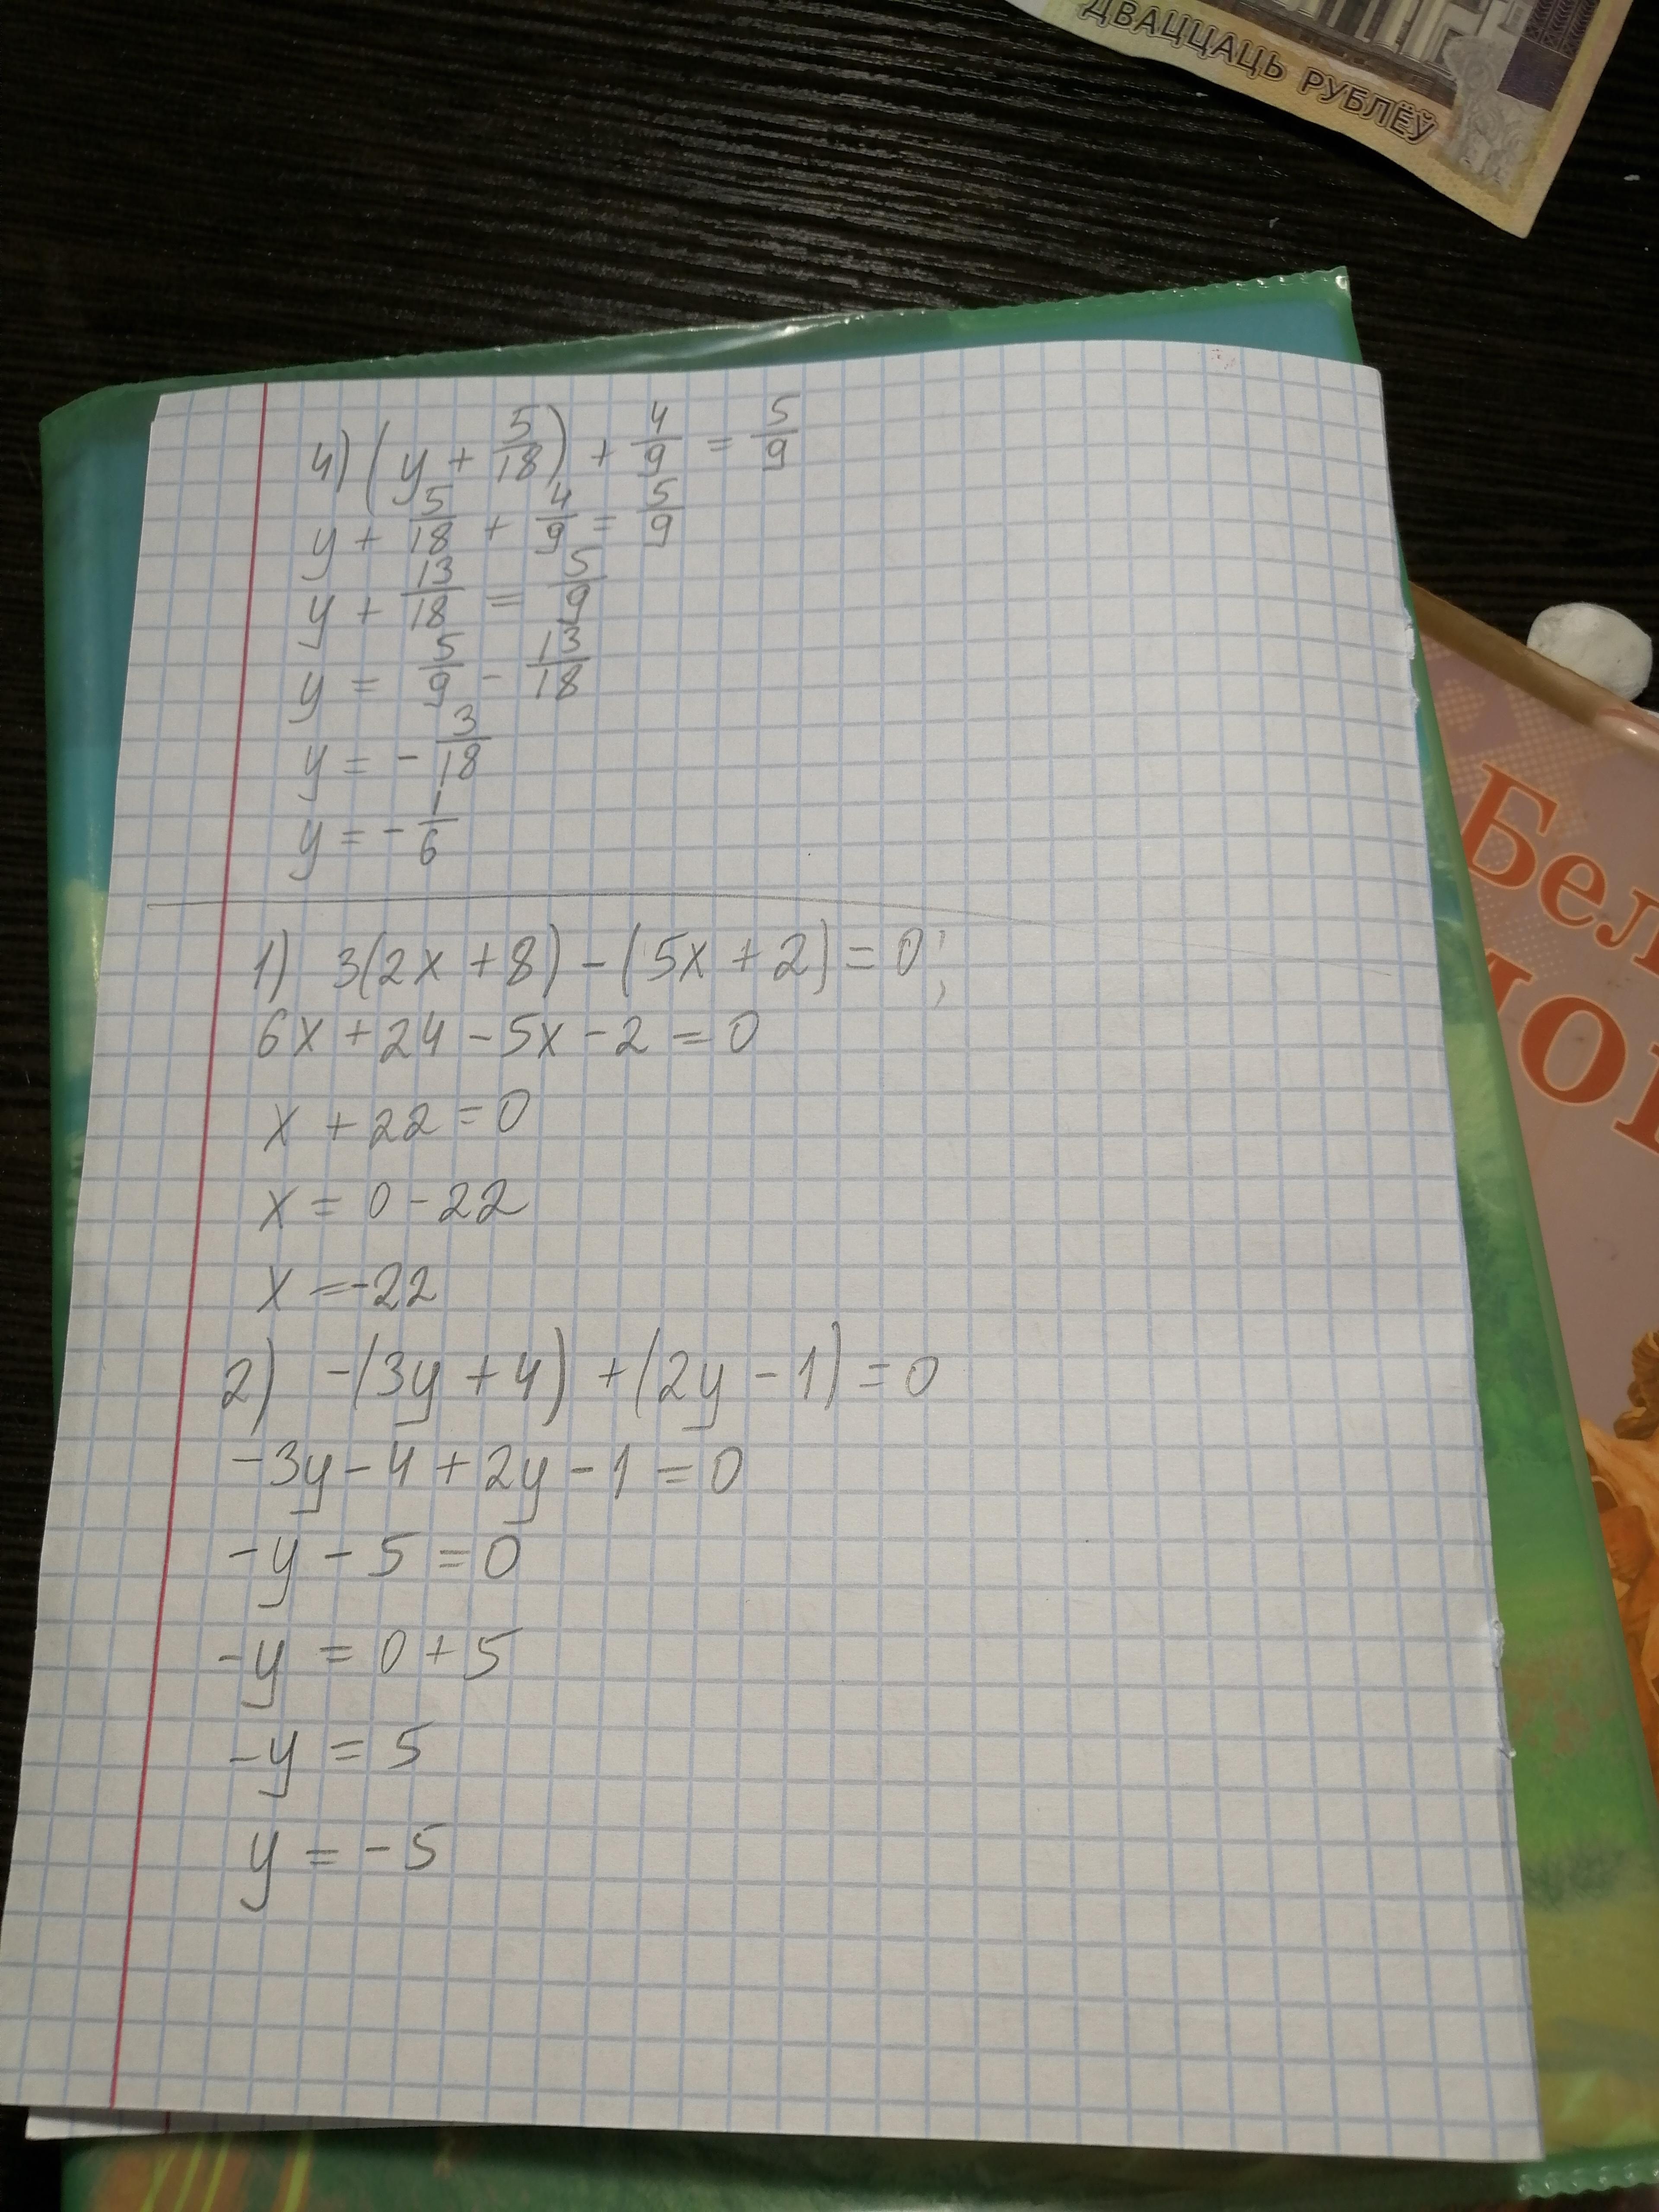 ДВАЦЦАЦЬ РУБЛЁЎ
4) (y + 5/18) + 4/9 = 5/9
y + 5/18 + 4/9 = 5/9
y + 13/18 = 5/9
y = 5/9 - 13/18
y = - 3/18
y = - 1/6
1) 3(2x + 8) - (5x + 2) = 0;
6x + 24 - 5x - 2 = 0
x + 22 = 0
x = 0 - 22
x = -22
2) -(3y + 4) + (2y - 1) = 0
-3y - 4 + 2y - 1 = 0
-y - 5 = 0
-y = 0 + 5
-y = 5
y = -5